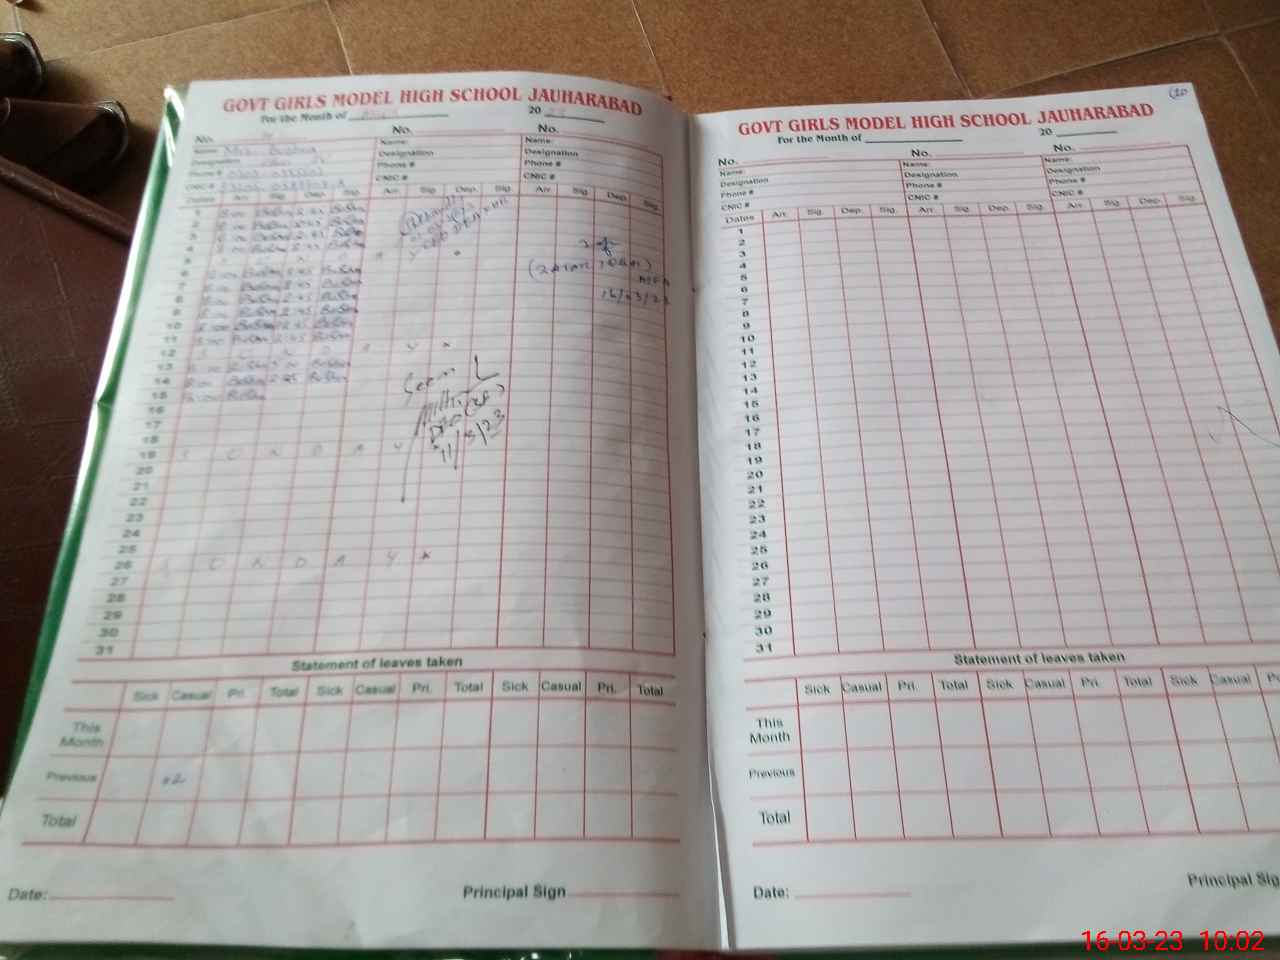 GOVT GIRLS MODEL HIGH SCHOOL JAUHARABAD
For the Month of 20 23
No. No. No.
Name: Miss Bushra Name: Name:
Designation Designation Designation
Phone # Phone # Phone #
CNIC # CNIC # CNIC #
Dates Arr. Sig. Dep. Sig. Arr. Sig. Dep. Sig. Arr. Sig. Dep. Sig.
1 8:00 Bushra 2:45 Bushra
2 8:00 Bushra 2:45 Bushra
3 8:00 Bushra 2:45 Bushra
4 8:00 Bushra 2:45 Bushra
5 S U N D A Y
6 8:00 Bushra 2:45 Bushra
7 8:00 Bushra 2:45 Bushra
8 8:00 Bushra 2:45 Bushra
9 8:00 Bushra 2:45 Bushra
10 8:00 Bushra 2:45 Bushra
11 8:00 Bushra 2:45 Bushra
12 S U N D A Y
13 8:00 Bushra Bushra
14 8:00 Bushra 2:45 Bushra
15 8:00 Bushra
16
17
18
19 S U N D A Y
20
21
22
23
24
25
26 S U N D A Y
27
28
29
30
31
16/03/23
Seen
11/3/23
Statement of leaves taken
Sick Casual Pri. Total Sick Casual Pri. Total Sick Casual Pri. Total
This Month
Previous 02
Total
Date: Principal Sign
20
GOVT GIRLS MODEL HIGH SCHOOL JAUHARABAD
For the Month of 20
No. No. No.
Name: Name: Name:
Designation Designation Designation
Phone # Phone # Phone #
CNIC # CNIC # CNIC #
Dates Arr. Sig. Dep. Sig. Arr. Sig. Dep. Sig. Arr. Sig. Dep. Sig.
1
2
3
4
5
6
7
8
9
10
11
12
13
14
15
16
17
18
19
20
21
22
23
24
25
26
27
28
29
30
31
Statement of leaves taken
Sick Casual Pri. Total Sick Casual Pri. Total Sick Casual
This Month
Previous
Total
Date: Principal Sig
16-03-23 10:02